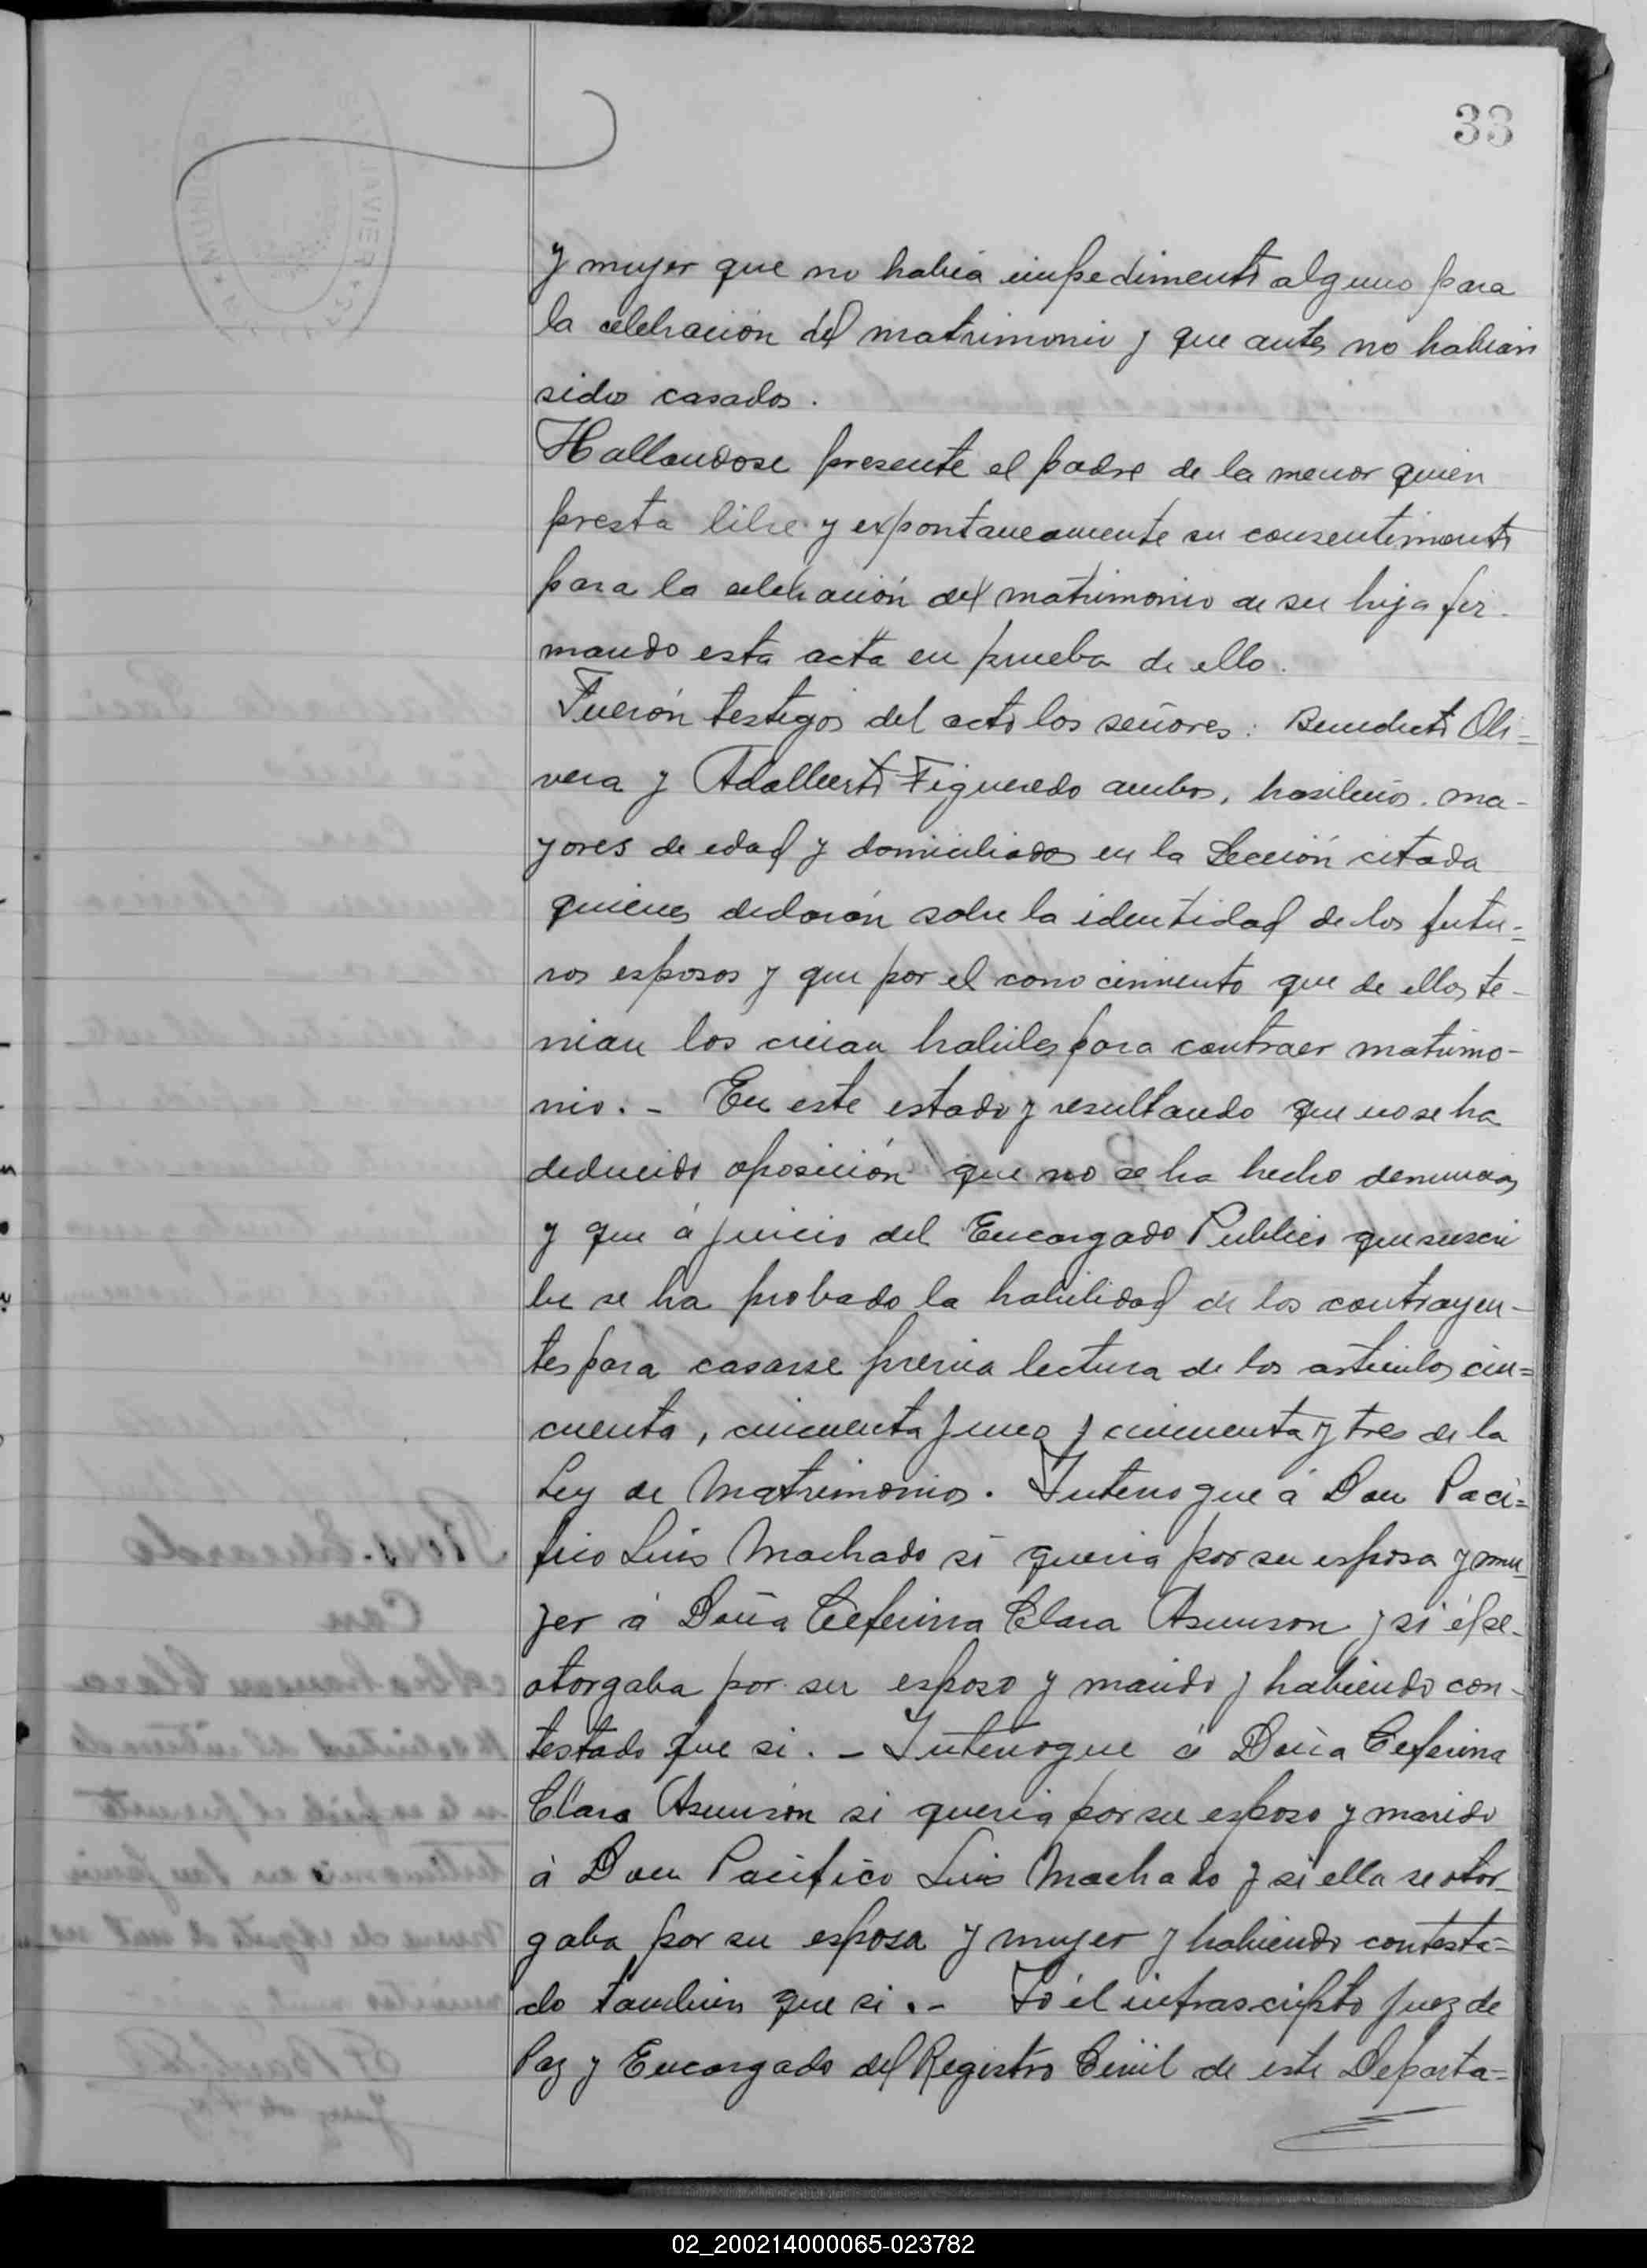 33
y mujer que no habia impedimento alguno para
la celebración del matrimonio y que antes no habian
sido casados.
Hallandose presente el padre de la menor quien
presta libre y expontaneamente su consentimento
para la celebración del matrimonio de su hija fir-
mando esta acta en prueba de ello.
Fuerón testigos del acto los señores: Benedicto Oli=
vera y Adalberto Figueredo ambos, brasileños, ma-
yores de edad y domiciliados en la Sección citada
quienes declarón sobre la identidad de los futu=
ros esposos y que por el conocimiento que de ellos te-
nian los creian habiles para contraer matrimo-
nio. - En este estado y resultando que no se ha
deducido oposición que no se ha hecho denuncias
y que á juicio del Encargado Publico que suscri
be se ha probado la habilidad de los contrayen-
tes para casarse previa lectura de los articulos cin=
cuenta, cincuenta y uno y cincuenta y tres de la
Ley de Matrimonios. Interrogue á Don Paci=
fico Luis Machado si queria por su esposa y mu=
jer á Doña Ceferina Clara Asunson y si él se-
otorgaba por su esposo y marido y habiendo con-
testado que si. - Interrogue á Doña Ceferina
Clara Asunsón si queria por su esposo y marido
á Don Pacifico Luis Machado y si ella se otor-
gaba por su esposa y mujer y habiendo contesta=
do tambien que si. - Yó él infrascripto Juez de
Paz y Encargado del Registro Civil de este Departa=
02_200214000065-023782